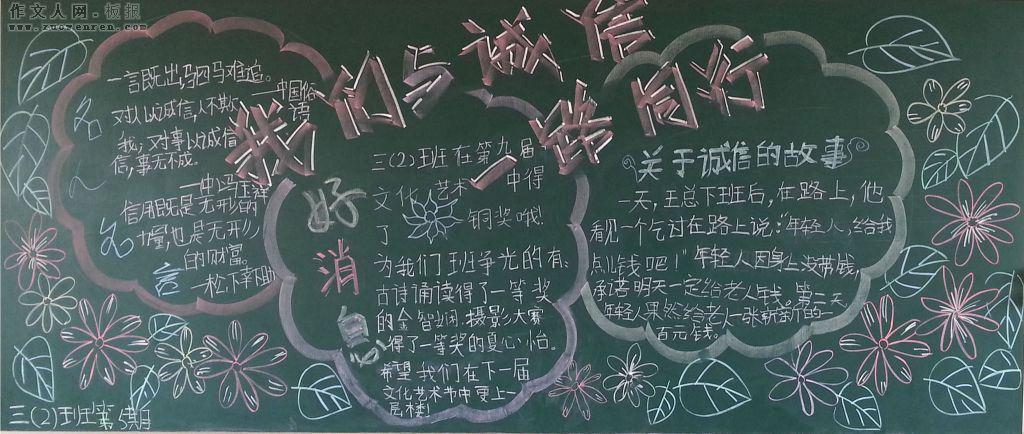 作文人网·板报
www.zuowenren.net
我们与诚信同行
名人名言
一言既出,驷马难追。
——中国俗语
对人以诚信,人不欺
我;对事以诚信,
信,事无不成。
——冯玉祥
信用既是无形的
力量,也是无形
的财富。
—松下幸助
好消息
三(2)班在第九届
文化艺术 中得
了 铜奖哦!
为我们班争光的有:
古诗诵读得了一等奖
的金智娴,摄影大赛
得了一等奖的夏心怡。
希望我们在下一届
文化艺术节中更上一
层楼!
关于诚信的故事
一天,王总下班后,在路上,他
看见一个乞讨在路上说:“年轻人,给我
点儿钱吧!”年轻人因身上没带钱,
承若明天一定给老人钱。第二天,
年轻人果然给老人一张崭新的一
百元钱。
三(2)班第5期